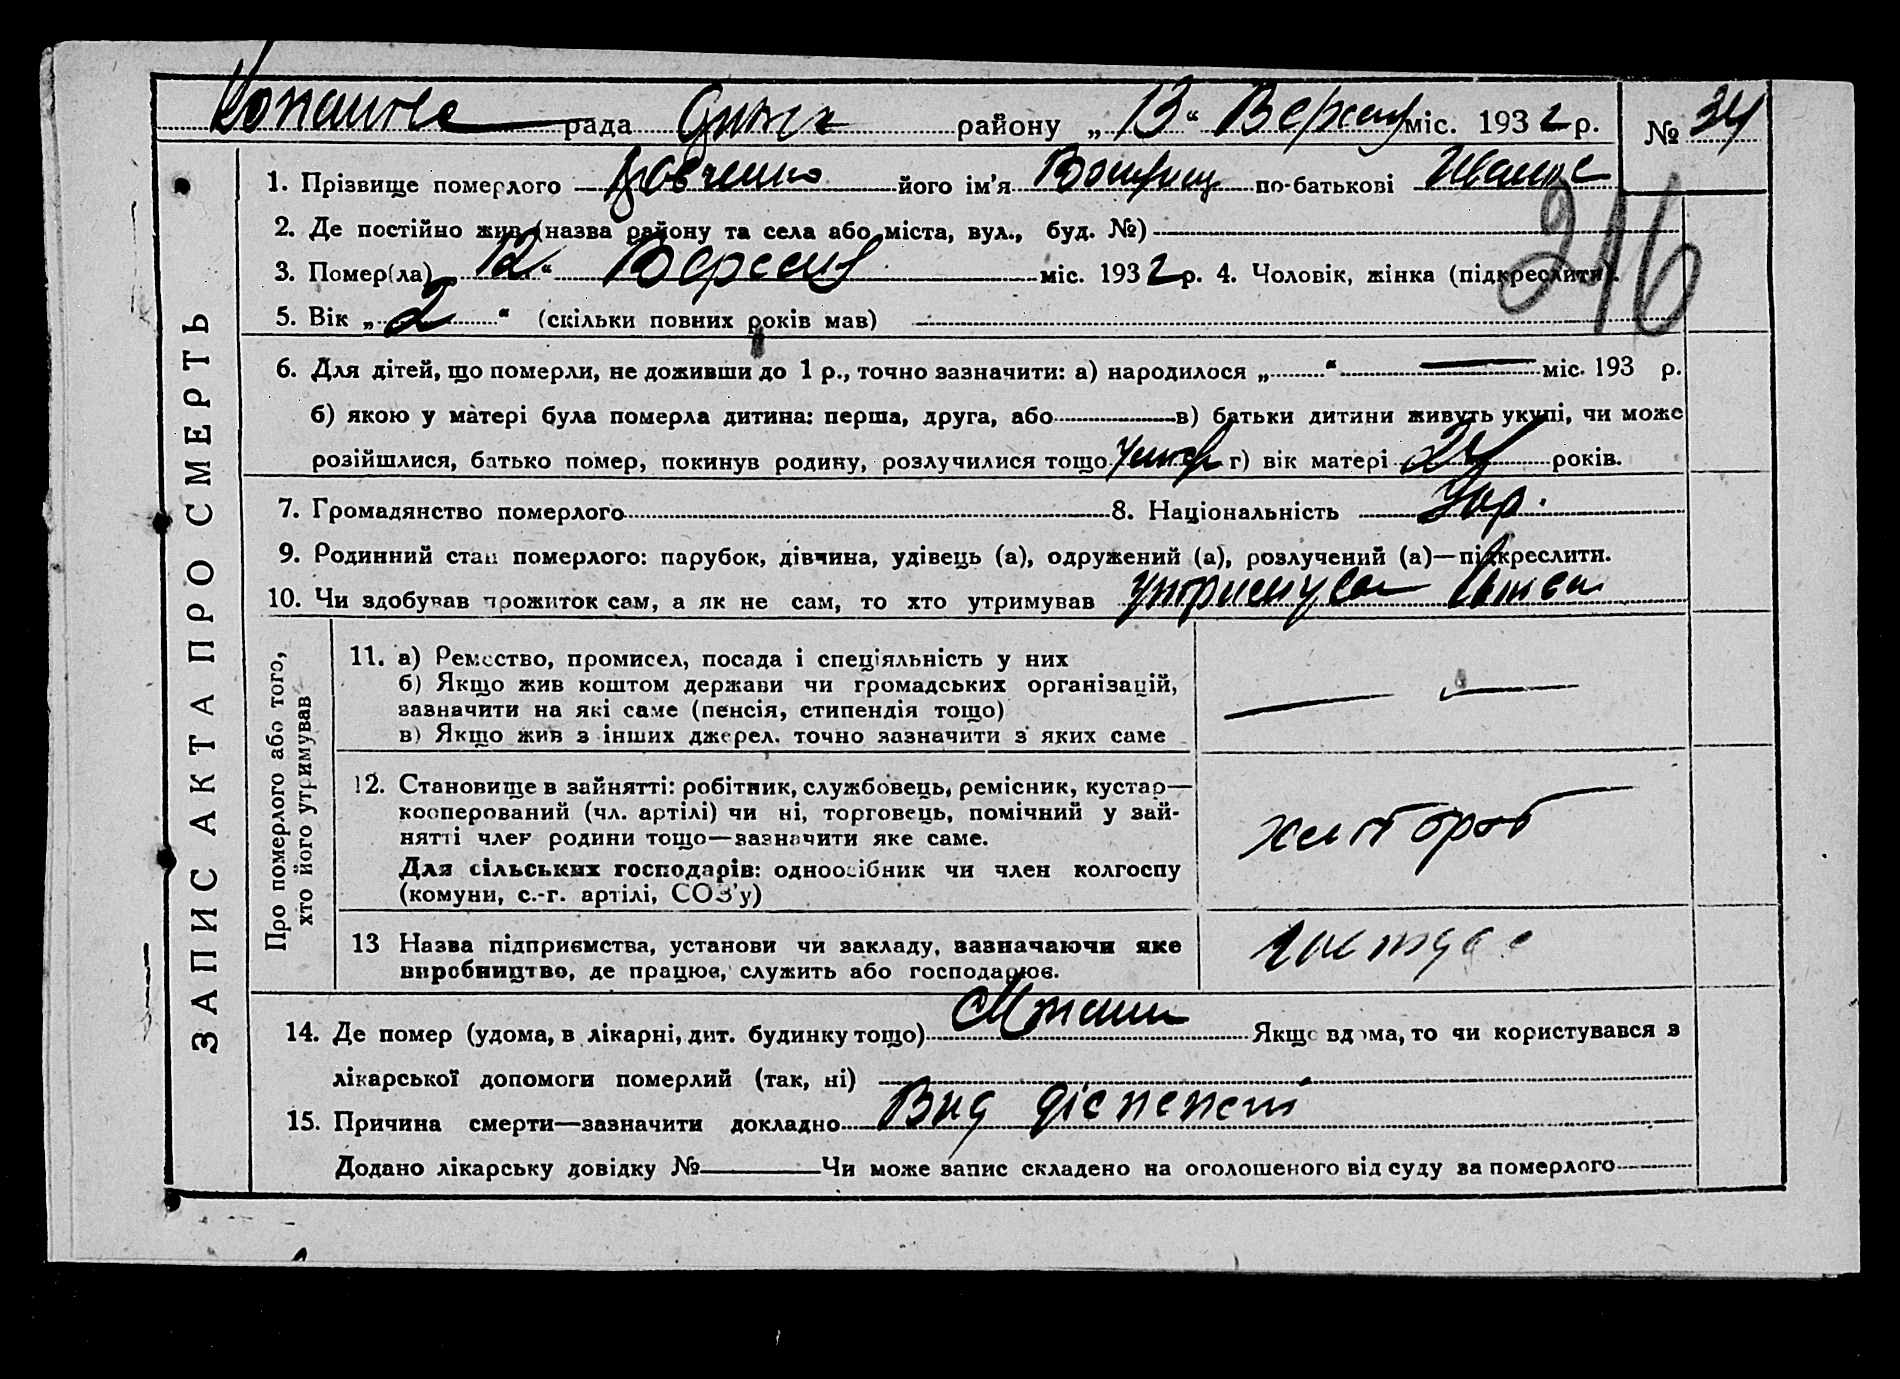 рада району „ 13 “ Вересня міс. 193 2 р. № 34
1. Прізвище померлого його ім'я по-батькові
2. Де постійно жив (назва району та села або міста, вул., буд. №)
3. Помер(ла) „ 12 “ Вересня міс. 193 2 р. 4. Чоловік, жінка (підкреслити).
216
5. Вік „ 2 “ (скільки повних років мав)
6. Для дітей, що померли, не доживши до 1 р., точно зазначити: а) народилося „ “ — міс. 193 р.
б) якою у матері була померла дитина: перша, друга, або в) батьки дитини живуть укупі, чи може
розійшлися, батько помер, покинув родину, розлучилися тощо г) вік матері 24 років.
7. Громадянство померлого 8. Національність Укр.
9. Родинний стан померлого: парубок, дівчина, удівець (а), одружений (а), розлучений (а)—підкреслити.
10. Чи здобував прожиток сам, а як не сам, то хто утримував
ЗАПИС АКТА ПРО СМЕРТЬ
Про померлого або того,
хто його утримував
11. а) Ремество, промисел, посада і спеціяльність у них
б) Якщо жив коштом держави чи громадських організацій,
зазначити на які саме (пенсія, стипендія тощо)
в) Якщо жив з інших джерел, точно зазначити з яких саме
— —
12. Становище в зайнятті: робітник, службовець, ремісник, кустар—
кооперований (чл. артілі) чи ні, торговець, помічний у зай-
нятті член родини тощо—зазначити яке саме.
Для сільських господарів: одноосібник чи член колгоспу
(комуни, с.-г. артілі, СОЗ'у)
хлібороб
13 Назва підприємства, установи чи закладу, зазначаючи яке
виробництво, де працює, служить або господарює.
14. Де помер (удома, в лікарні, дит. будинку тощо) Якщо вдома, то чи користувався з
лікарської допомоги померлий (так, ні)
15. Причина смерти—зазначити докладно Від
Додано лікарську довідку № Чи може запис складено на оголошеного від суду за померлого